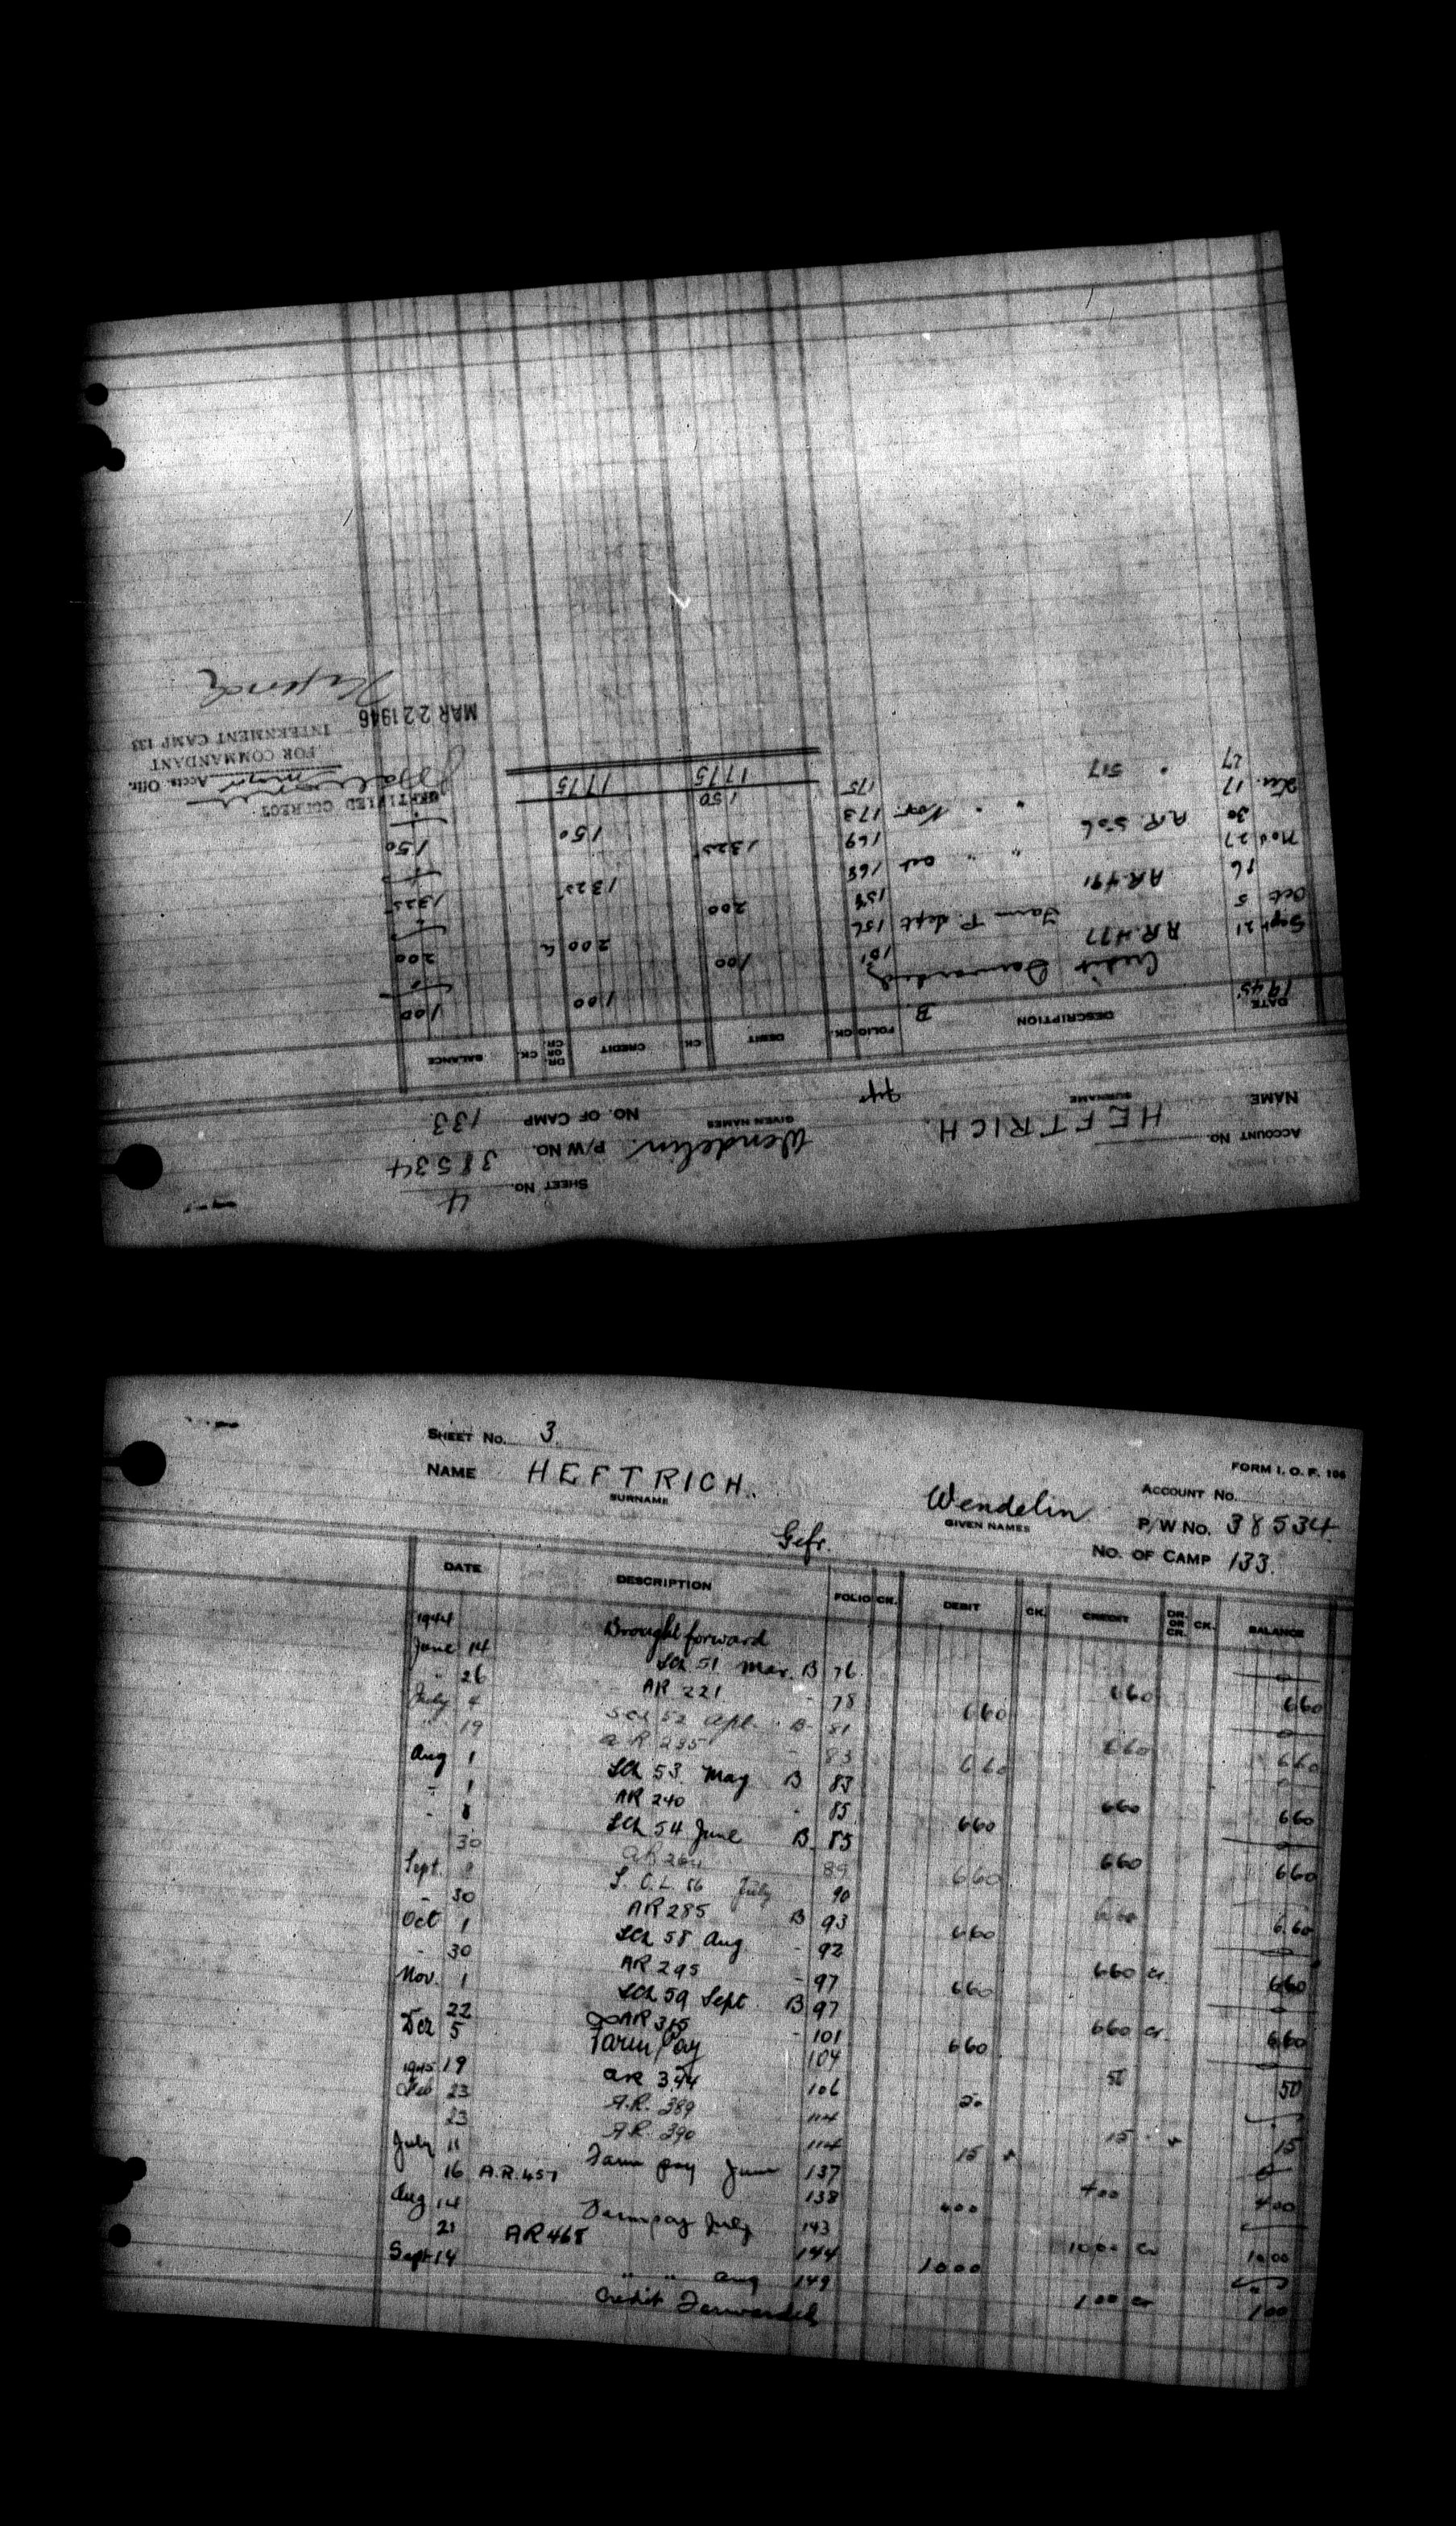 SHEET No. 4
ACCOUNT No.
NAME HEFTRICH Wendelin P/W No. 38534
SURNAME GIVEN NAMES NO. OF CAMP 133
DATE DESCRIPTION FOLIO CK. DEBIT CK. CREDIT DR. OR CR. CK. BALANCE
1945 B.
Credit Forwarded 100 100
Sept 21 A.R. 477 151 100
Oct 5 Farm P. Sept 156 200 200
16 A.R. 491 158 200
Nov 27 " " Oct 168 1325 1325
30 A.R. 506 169 1325
Dec. 17 " " Nov. 173 150 150
27 " 517 175 150
1775 1775
CERTIFIED CORRECT
Accts. Offr.
FOR COMMANDANT
INTERNMENT CAMP 133
MAR 22 1946
SHEET No. 3.
FORM I. O. F. 106
NAME HEFTRICH. Wendelin ACCOUNT No.
SURNAME GIVEN NAMES P/W No. 38534
Gefr. No. OF CAMP 133.
DATE DESCRIPTION FOLIO CK. DEBIT CK. CREDIT DR. OR CR. CK. BALANCE
1944 Brought forward
June 14 Sch 51 Mar. B 76 660 660
" 26 AR 221 - 78 660
July 4 Sch 52 Apl. B 81 660 660
" 19 AR 235 - 83 660
Aug 1 Sch 53 May B 83 660 660
" 1 AR 240 - 85 660
" 8 Sch 54 June B 85 660 660
30 AR 264 89 660
Sept. 8 S.C.L. 56 July 90 660 660
" 30 AR 285 B 93 660
Oct 1 Sch 58 Aug - 92 660 cr. 660
" 30 AR 295 - 97 660
Nov. 1 Sch 59 Sept B 97 660 cr. 660
" 22 AR 315 - 101 660
Dec 5 Farm Pay 104 50 50
19 AR 344 106 50
1945
Feb 23 A.R. 389 114 15 15
23 A.R. 390 114 15
July 11 Farm pay June 137 400 400
16 A.R. 457 138 400
Aug 14 Farm pay July 143 1000 cr 1000
21 AR 468 144 1000
Sept 14 " " Aug 149 100 cr 100
Credit Forwarded